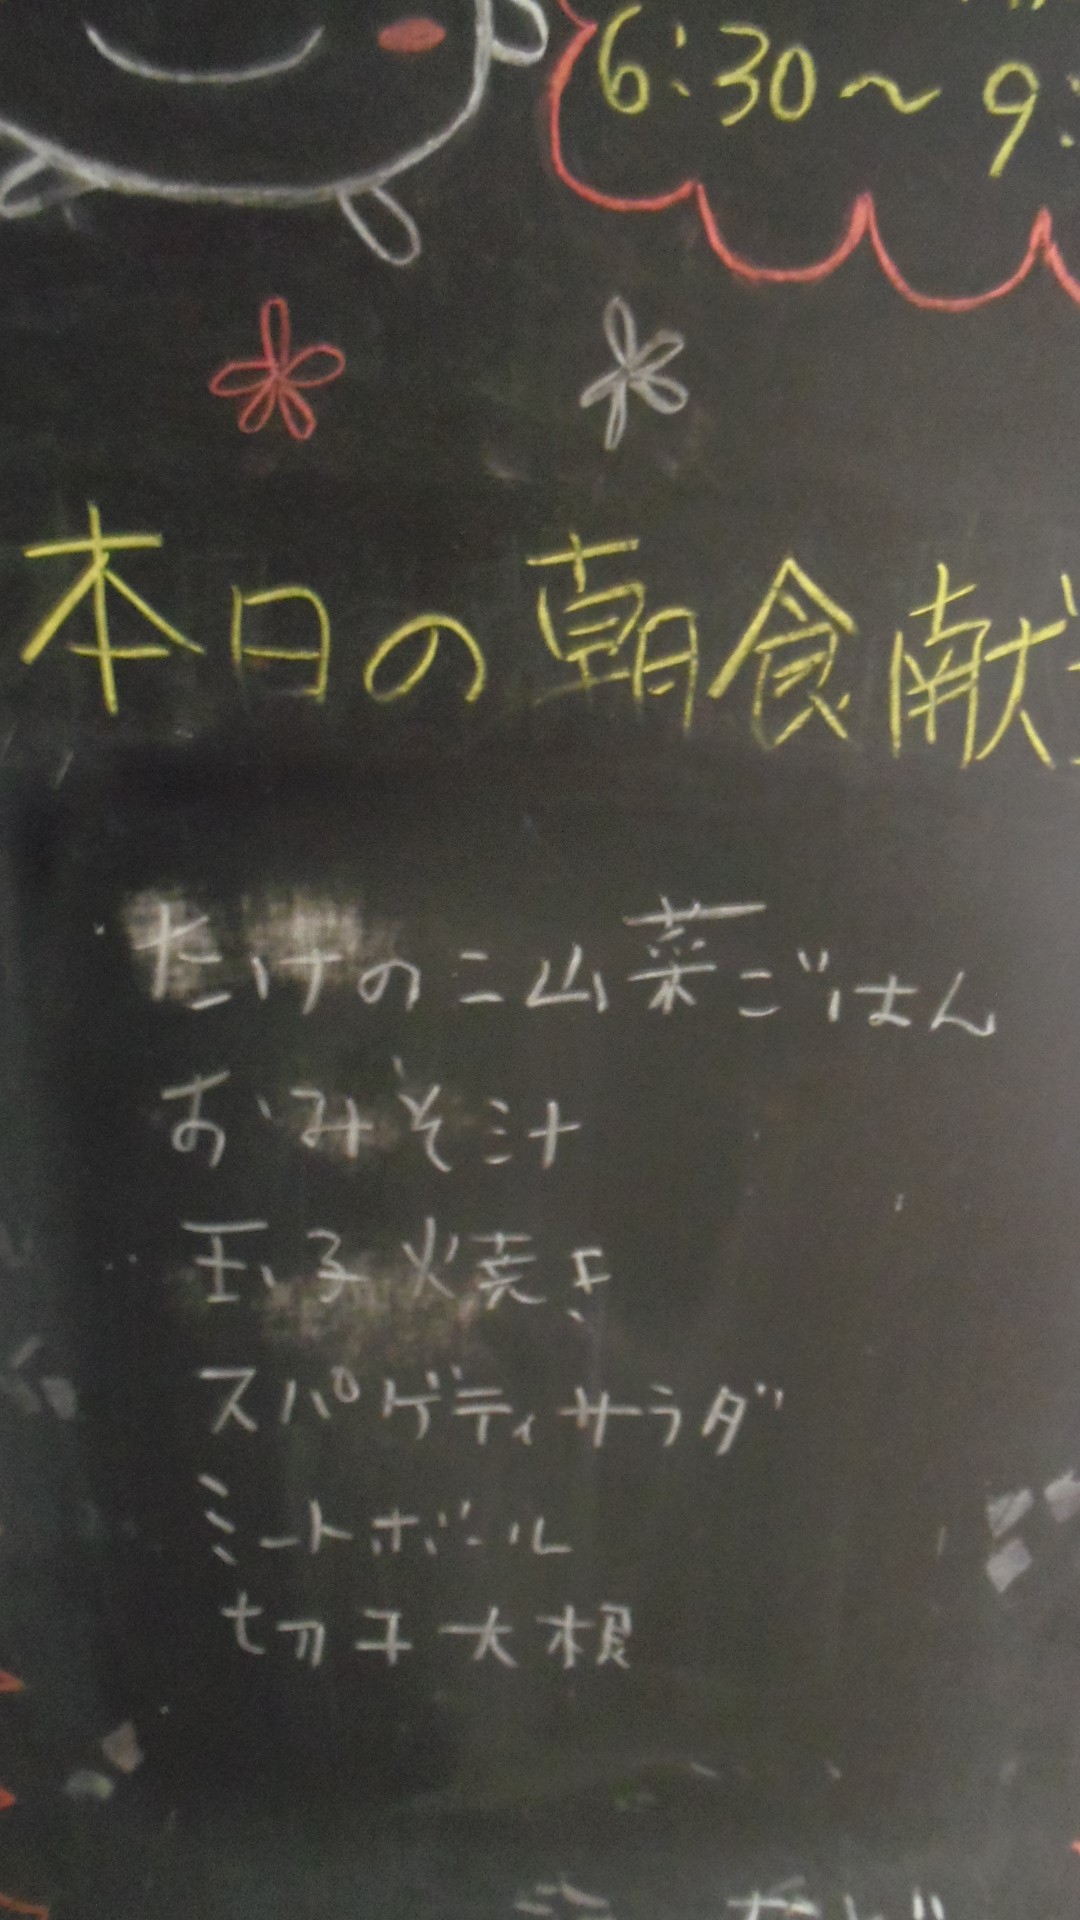 6:30～9:
本日の朝食献
たけのこ山菜ごはん
おみそ汁
玉子焼き
スパゲティサラダ
ミートボール
切子大根